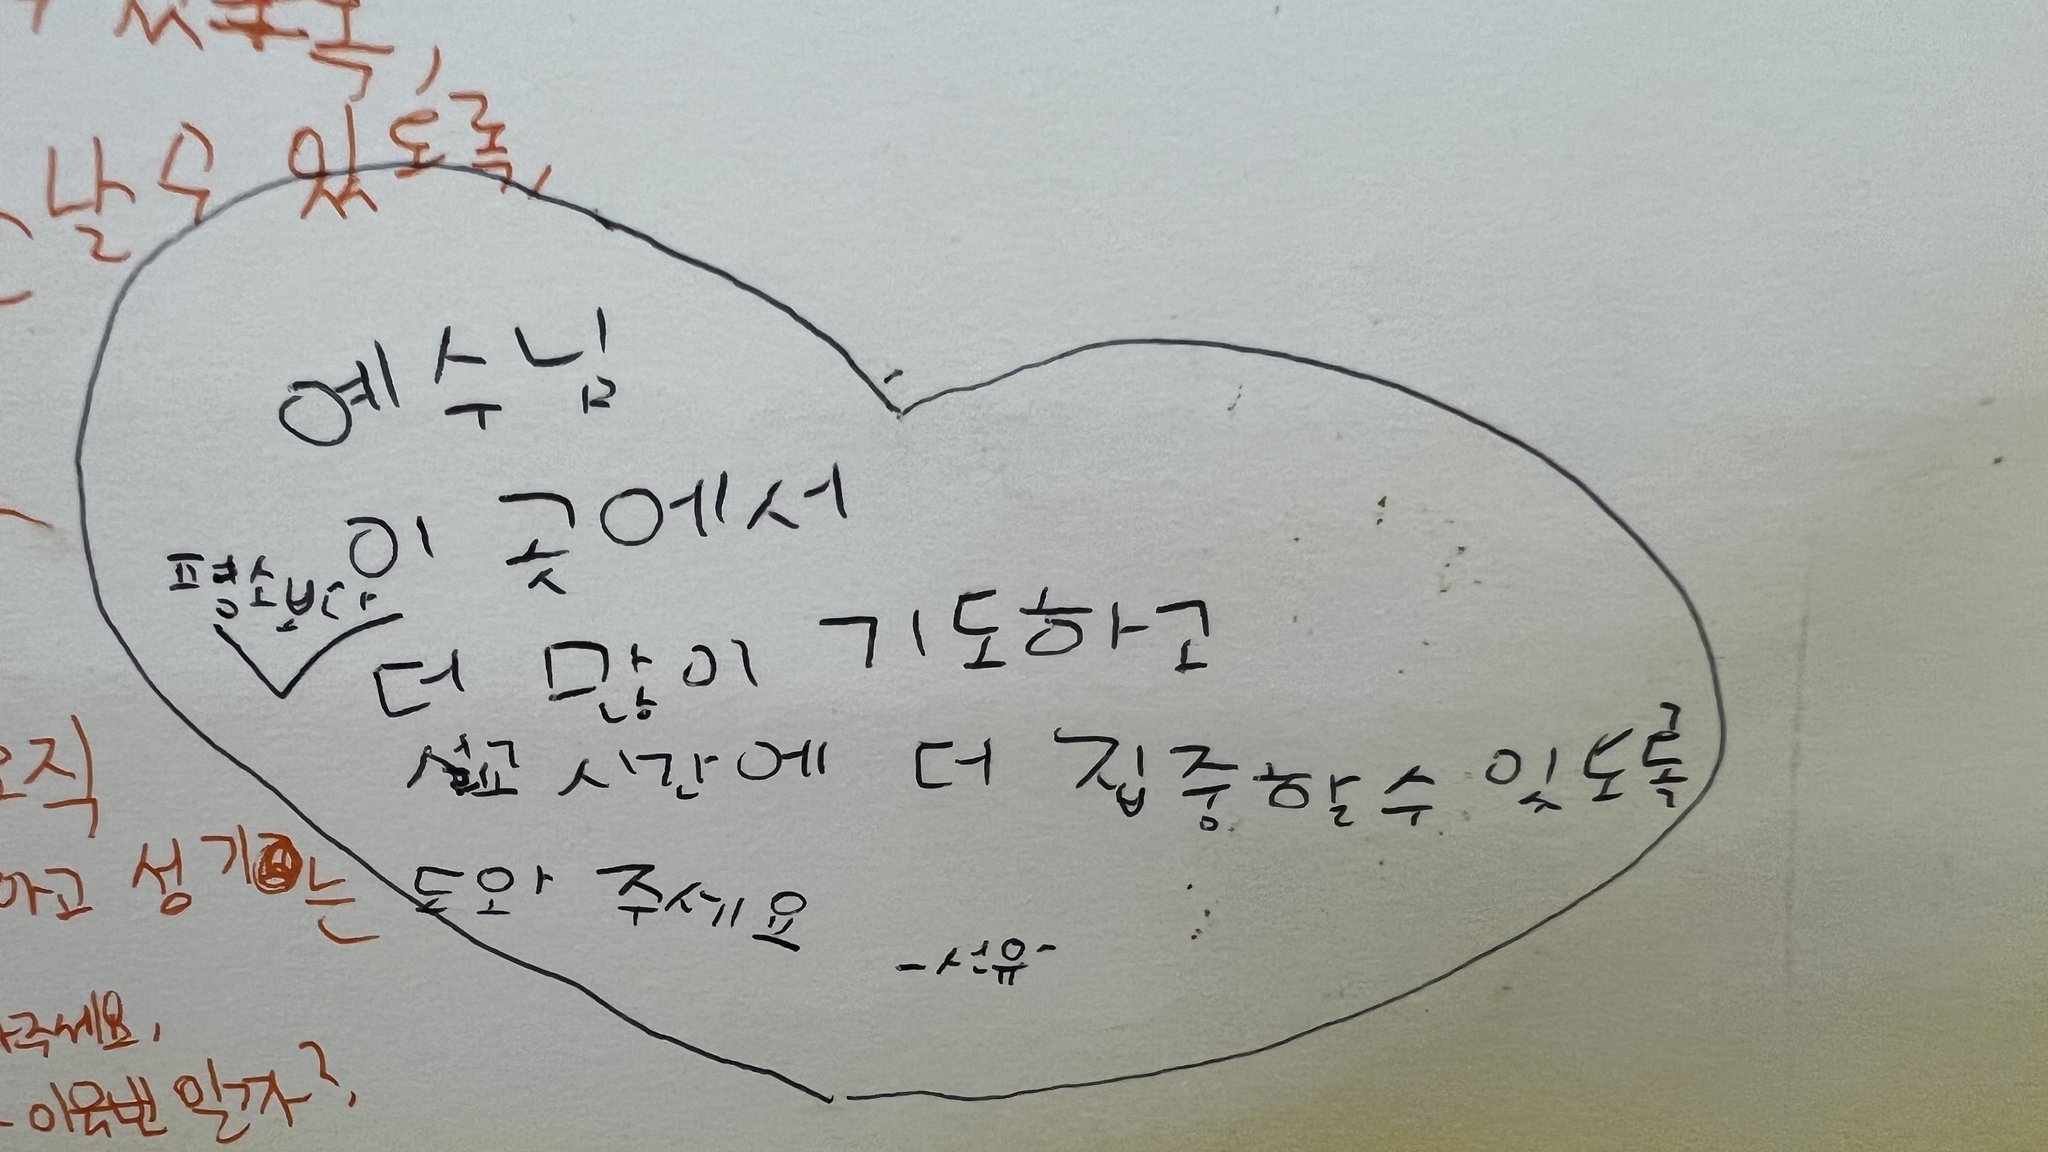 날 수 있도록,
예수님
이 곳에서
평소보다
더 많이 기도하고
설교 시간에 더 집중할 수 있도록
도와 주세요
-선유-
오직
하고 섬기는
주세요,